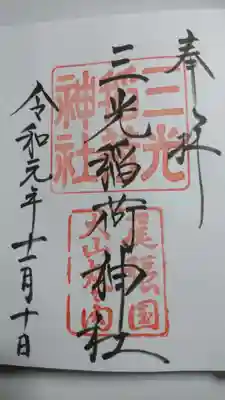 奉拝
三光稲荷神社
令和元年十一月十日
三光
稲荷
神社
尾張国
犬山城内